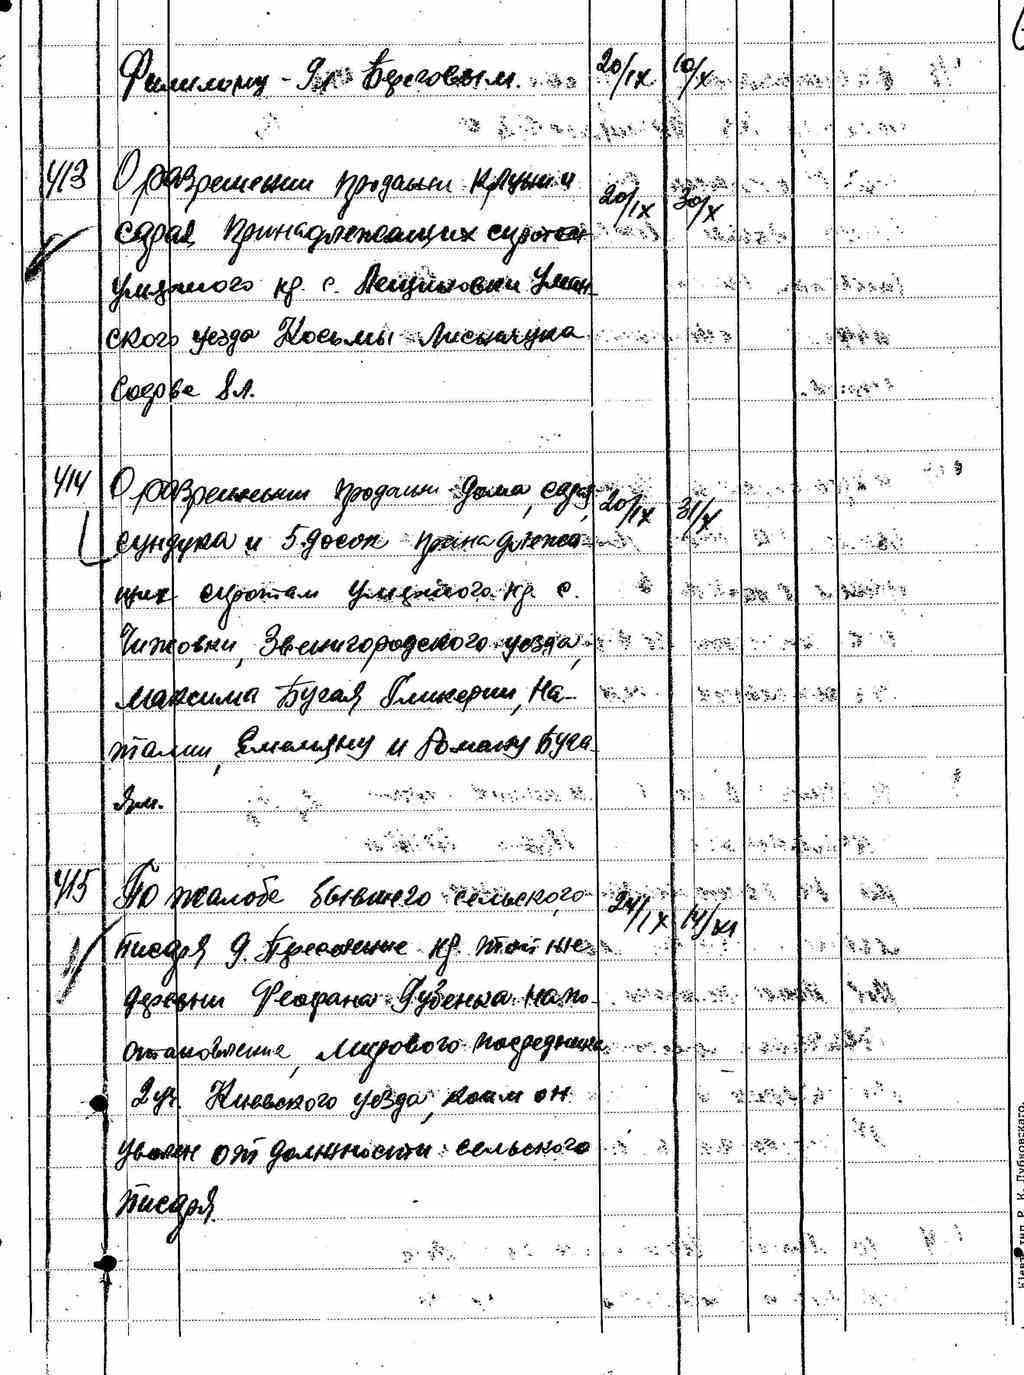 Филимону - Як Береговым. 20/IX 10/X
413 О разрешении продажи клуни и 20/IX 30/X
сарая, принадлежащих сиротам
умершого кр. с. Пещиховки Уман
ского уезда Косьмы Лисничука
8 л.
414 О разрешении продажи дома, сарая, 20/IX 31/X
сундука и 5 досок принадлежа
щих сиротам умершого кр. с.
Чижовки, Звенигородского уезда,
Максима Бугая Гликерии, На-
талии, Емельяну и Роману Буга
ям.
415 По жалобе бывшего сельского 24/IX 14/XI
писаря д. кр. той же
деревни Феофана Губенка на по-
становление, мирового посредника
2 уч. Киевского уезда, коим он
уволен от должности сельского
писаря.
Кіевъ, тип. Р. К. Лубковскаго.